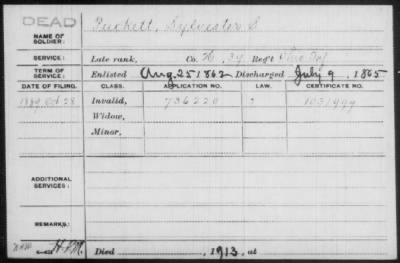 DEAD
NAME OF SOLDIER: Puckett, Sylvester S
SERVICE: Late rank, Co. H, 39 Reg't Ohio Inf
TERM OF SERVICE: Enlisted Aug 25 1862 Discharged July 9, 1865
DATE OF FILING. CLASS. APPLICATION NO. LAW. CERTIFICATE NO.
1889 Oct 28 Invalid, 736220 1031999
Widow,
Minor,
ADDITIONAL SERVICES:
REMARKS:
Died 1913, at